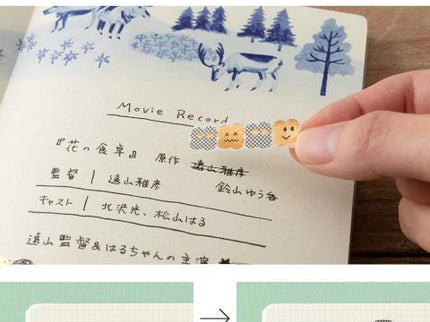 Movie Record
『花の食卓』 原作 遠山雅彦
鈴山ゆう香
監督 | 遠山雅彦
キャスト | 北沢光、松山はる
遠山監督&はるちゃんの主演